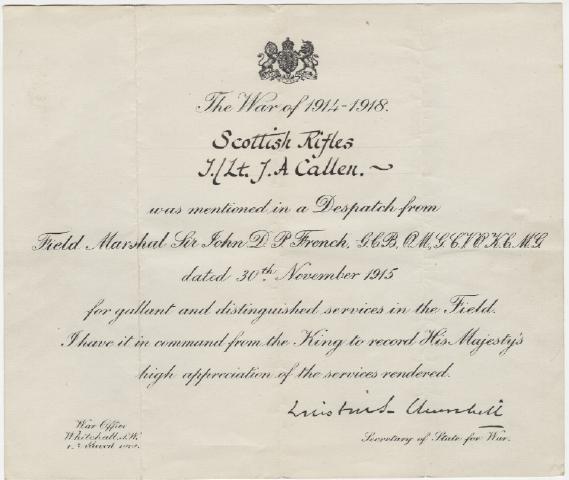 The War of 1914-1918.
Scottish Rifles
T./Lt. J. A Callen.
was mentioned in a Despatch from
Field Marshal Sir John D. P. French, G.C.B, O.M, G.C.V.O, K.C.M.G.
dated 30th November 1915
for gallant and distinguished services in the Field.
I have it in command from the King to record His Majesty's
high appreciation of the services rendered.
Winston S Churchill
War Office
Whitehall, S.W.
Secretary of State for War.